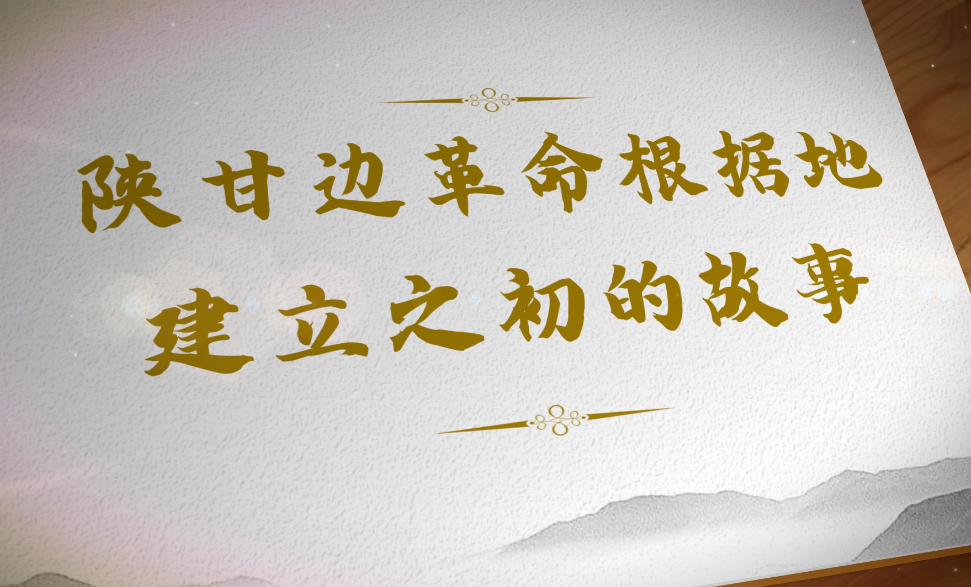 陕甘边革命根据地
建立之初的故事